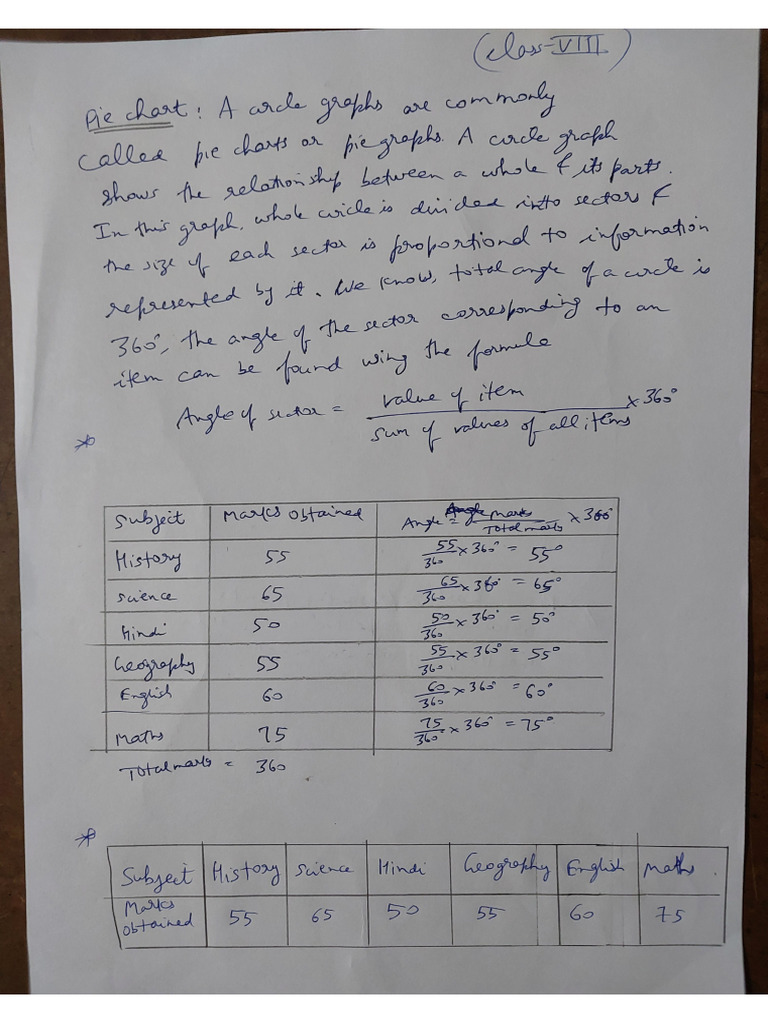 (class-VIII)
Pie chart : A circle graphs are commonly
called pie charts or pie graphs. A circle graph
shows the relationship between a whole & its parts.
In this graph, whole circle is divided into sectors &
the size of each sector is proportional to information
represented by it. We know, total angle of a circle is
360°, the angle of the sector corresponding to an
item can be found using the formula
Angle of sector = value of item / sum of values of all items × 360°
*
Subject Marks obtained Angle = Marks / Total marks × 360
History 55 55/360 × 360° = 55°
Science 65 65/360 × 360° = 65°
Hindi 50 50/360 × 360° = 50°
Geography 55 55/360 × 360° = 55°
English 60 60/360 × 360° = 60°
Maths 75 75/360 × 360° = 75°
Total marks = 360
*
Subject History Science Hindi Geography English Maths.
Marks obtained 55 65 50 55 60 75